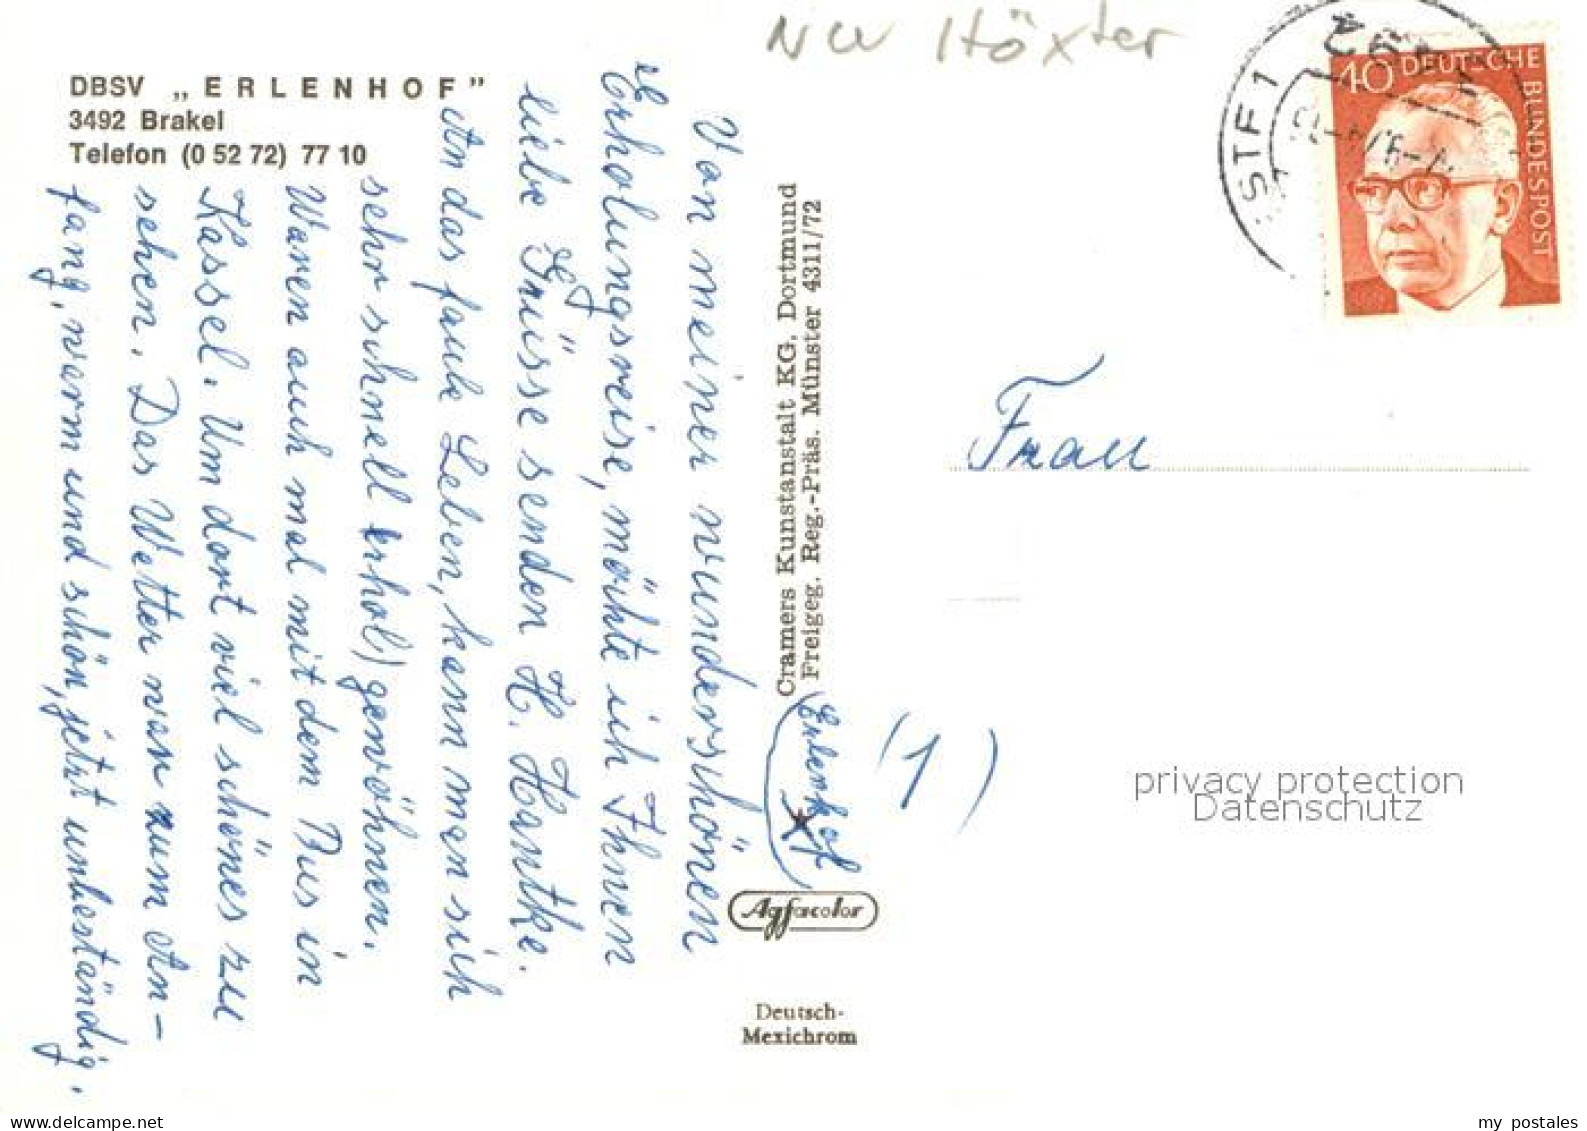 NW Höxter
DBSV „ERLENHOF”
3492 Brakel
Telefon (0 52 72) 77 10
Von meiner wunderschönen
Erholungsreise, möchte ich Ihnen
liebe Grüsse senden H. Hantke.
An das faule Leben, kann man sich
sehr schnell (erhol) gewöhnen.
Waren auch mal mit dem Bus in
Kassel. Um dort viel schönes zu
sehen. Das Wetter war zum An-
fang, warm und schön, jetzt unbeständig.
Cramers Kunstanstalt KG, Dortmund
Freigeg. Reg.-Präs. Münster 4311/72
(Erlenhof
(1)
Agfacolor
Deutsch-
Mexichrom
STF 1
40 DEUTSCHE
BUNDESPOST
Frau
privacy protection
Datenschutz
my postales